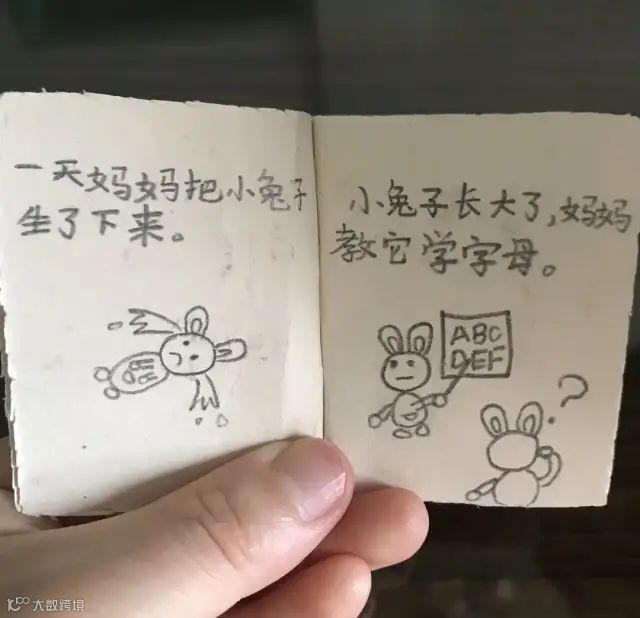 一天妈妈把小兔子
生了下来。
小兔子长大了,妈妈
教它学字母。
ABC
DEF
?
大数跨境